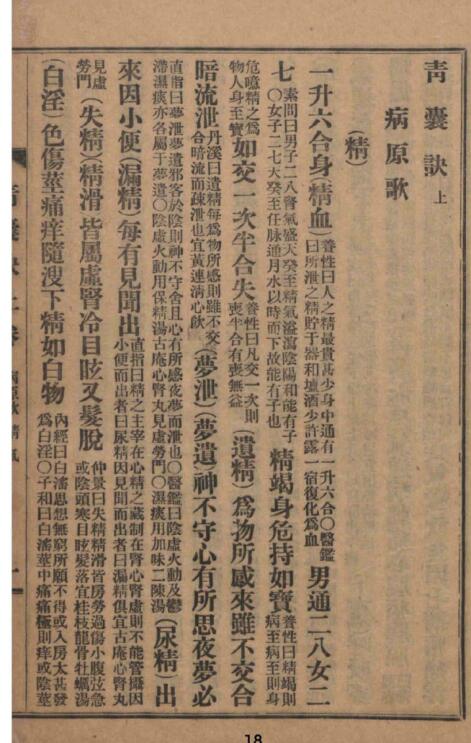 靑囊訣 上
病原歌
(精)
一升六合身精血) 養性曰人之精最貴甚少身中通有一升六合○醫鑑曰所泄之精貯于器和壚酒少許露一宿復化爲血 男通二八女二
七 素問曰男子二八腎氣盛天癸至精氣溢瀉陰陽和能有子○女子二七天癸至任脉通月水以時而下故能有子也 精竭身危持如寶 養性曰精竭則病至病至則身
危噫精之爲物人身至寶 如交一次半合失 養性曰凡交一次則喪半合有喪無益 (遺精) 爲物所感來雖不交合
暗流泄 丹溪曰遺精每爲物所感則雖不交合暗流而疎泄也宜黃連淸心飮 (夢泄)(夢遺)神不守心有所思夜夢必
直指曰夢泄夢遺邪客於陰則神不守舍且心有所感夜夢而泄也○醫鑑曰陰虛火動及鬱滯濕痰亦各屬于夢遺○陰虛火動用保精湯古庵心腎丸見虛勞門○濕痰用加味二陳湯 (尿精) 出
來因小便 (漏精) 每有見聞出 直指曰精之主宰在心精之藏制在腎心腎虛則不能管攝因小便而出者曰尿精因見聞而出者曰漏精俱宜古庵心腎丸
見虛勞門 (失精)(精滑 皆屬虛腎冷目眩又髮脫 仲景曰失精精滑皆房勞過傷小腹弦急或陰頭寒目眩髮落宜桂枝龍骨牡蠣湯
(白淫) 色傷莖痛痒隨溲下精如白物 內經曰白淫思想無窮所願不得或入房太甚發爲白淫○子和曰白淫莖中痛痛極則痒或陰莖
18